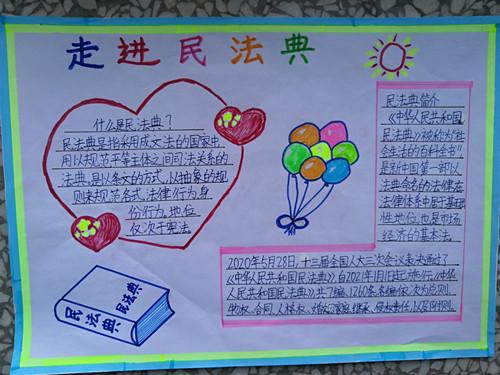 走进民法典
什么是民法典？
民法典是指采用成文法的国家中,
用以规范平等主体之间司法关系的
法典,是以条文的方式,以抽象的规
则来规范各式法律行为身
份行为,地位
仅次于宪法
民法典
民法典
民法典简介
《中华人民共和国
民法典》被称为"社
会生活的百科全书",
是新中国第一部以
法典命名的法律,在
法律体系中居于基础
性地位,也是市场
经济的基本法。
2020年5月28日,十三届全国人大三次会议表决通过了
《中华人民共和国民法典》,自2021年1月1日起施行。《中华
人民共和国民法典》共7编、1260条,各编依次为总则、
物权、合同、人格权、婚姻家庭、继承、侵权责任,以及附则。